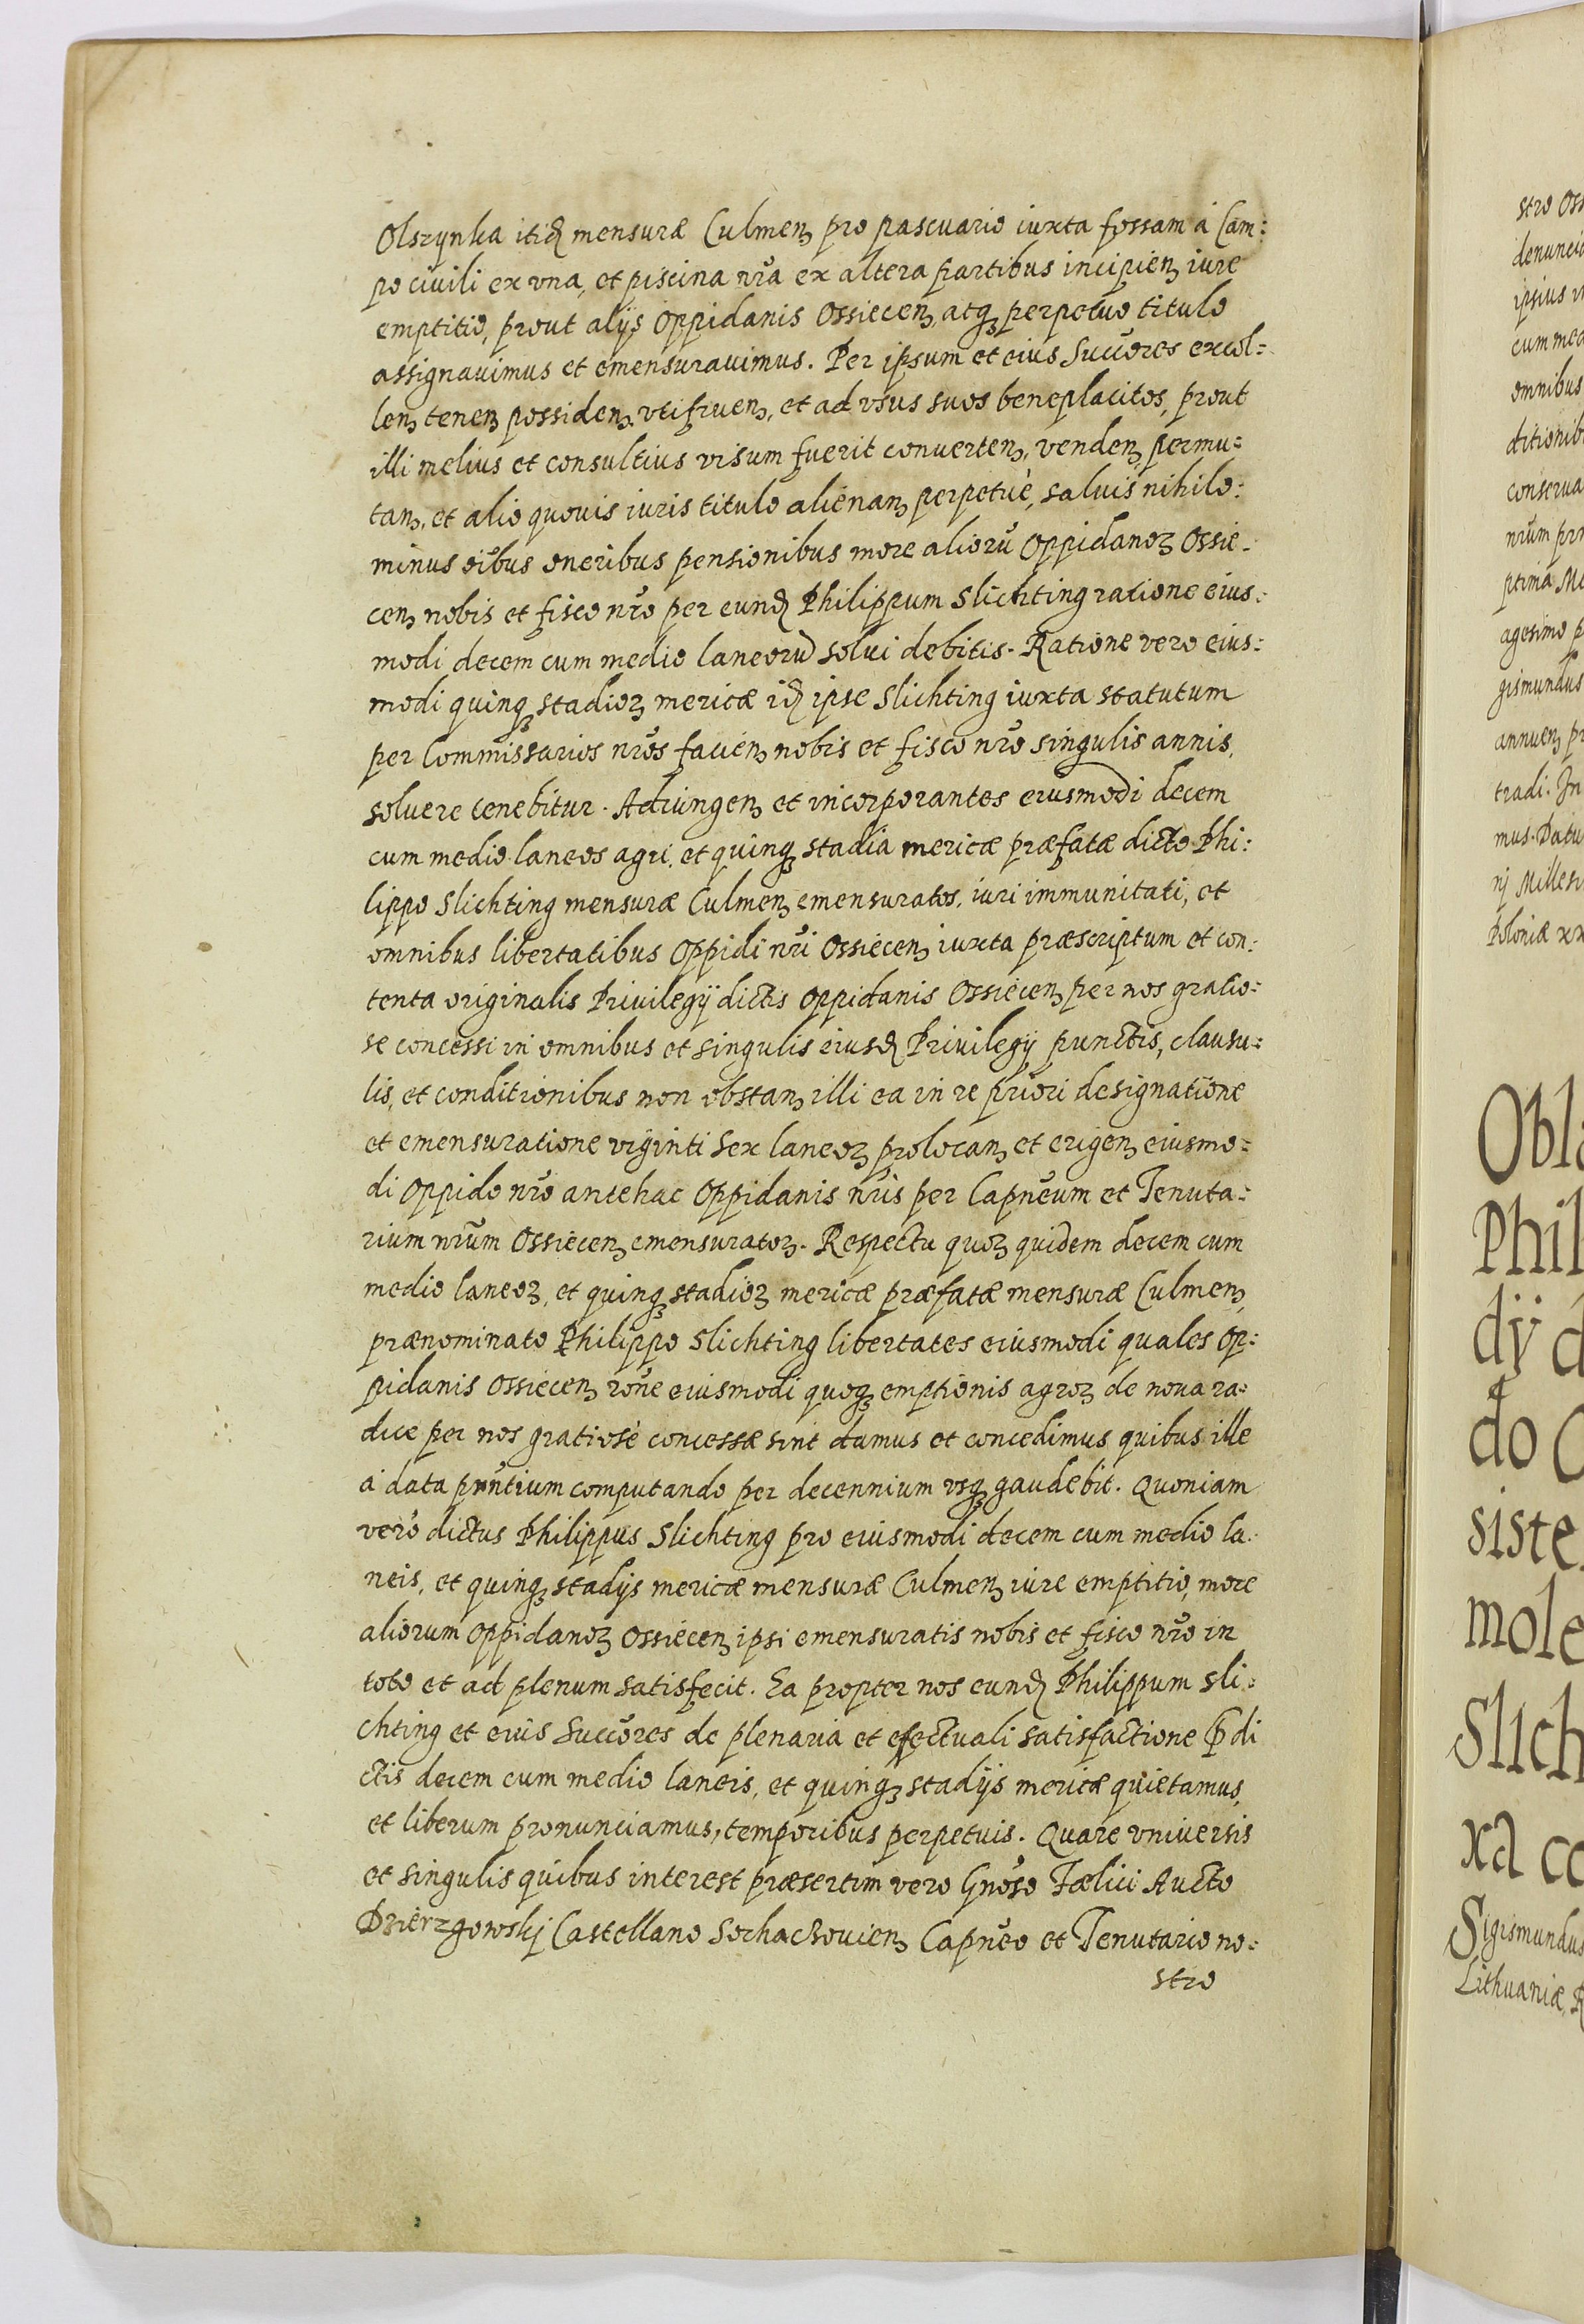 Olszynka itidꝫ mensuræ Culmenꝫ pro pascuario iuxta fossam á Cam:
po ciuili ex vna, et piscina nr̃a ex altera partibus incipienꝫ iure
emptitio, prout alijs Oppidanis Ossiecenꝫ, atqꝫ perpetuo titulo
assignauimus et emensurauimus. Per ipsum et eius Succ̃ores excol:
lenꝫ tenenꝫ possidenꝫ vtifruenꝫ, et ad vsus suos beneplacitos, prout
illi melius et consultius visum fuerit conuertenꝫ, vendenꝫ permu:
tanꝫ, et alio quouis iuris titulo alienanꝫ perpetuè, saluis nihilo:
minus oĩbus oneribus pensionibus more aliorũ Oppidanoꝝ Ossie-
cenꝫ nobis et fisco nr̃o per eundꝫ Philippum Slichting ratione eius:
modi decem cum medio laneorũ solui debitis. Ratione vero eius:
modi quinqꝫ stadioꝝ mericæ idꝫ ipse Slichting iuxta statutum
per Commissarios nr̃os facienꝫ nobis et fisco nr̃o singulis annis,
soluere tenebitur. Adiungenꝫ et incorporantes eiusmodi decem
cum medio laneos agri, et quinqꝫ stadia mericæ præfatæ dicto Phi:
lippo Slichting mensuræ Culmenꝫ emensuratos, iuri immunitati, et
omnibus libertatibus Oppidi nr̃i Ossiecenꝫ iuxta præscriptum et con:
tenta originalis Priuilegij dictis Oppidanis Ossiecenꝫ per nos gratio:
se concessi in omnibus et singulis eiusdꝫ Priuilegij punctis, clausu:
lis, et conditionibus non obstanꝫ illi ea in re priori designatione
et emensuratione viginti sex laneoꝝ prolocanꝫ et erigenꝫ eiusmo:
di Oppido nr̃o antehac Oppidanis nr̃is per Capneum et Tenuta:
rium nr̃um Ossiecenꝫ emensuratoꝝ. Respectu quoꝝ quidem decem cum
medio laneoꝝ, et quinqꝫ stadioꝝ mericæ præfatæ mensuræ Culmenꝫ,
prænominato Philippo Slichting libertates eiusmodi quales Op:
pidanis Ossiecenꝫ rõne eiusmodi quoqꝫ emptionis agroꝝ de noua ra:
dice per nos gratiosè concessæ sint damus et concedimus quibus ille
á data pñtium computando per decennium vsqꝫ gaudebit. Quoniam
verò dictus Philippus Slichting pro eiusmodi decem cum medio la:
neis, et quinqꝫ stadijs mericæ mensuræ Culmenꝫ iure emptitio, more
aliorum Oppidanoꝝ Ossiecenꝫ ipsi emensuratis nobis et fisco nr̃o in
toto et ad plenum satisfecit. Ea propter nos eundꝫ Philippum Sli:
chting et eiùs Succ̃ores de plenaria et efectuali satisfactione p̃di
ctis decem cum medio laneis, et quinqꝫ stadijs mericæ quietamus,
et liberum pronunciamus, temporibus perpetuis. Quare vniuersis
et singulis quibus interest præsertim vero Gnõso Fælici Aucto
Dzierzgowskj Castellano Sochaczouienꝫ Capneo et Tenutario no:
stro
stro Oss
denuncia
ipsius
cum med
omnibus
ditionib
conserua
nr̃um
ptima
agesimo
gismundus
annuenꝫ
tradi. In
mus. Datu
nj Millesi
Poloniæ xx
Obla
Phil
dÿ d
do C
siste
mole
Slich
xa co
Sigismundus
Lithuaniæ, R